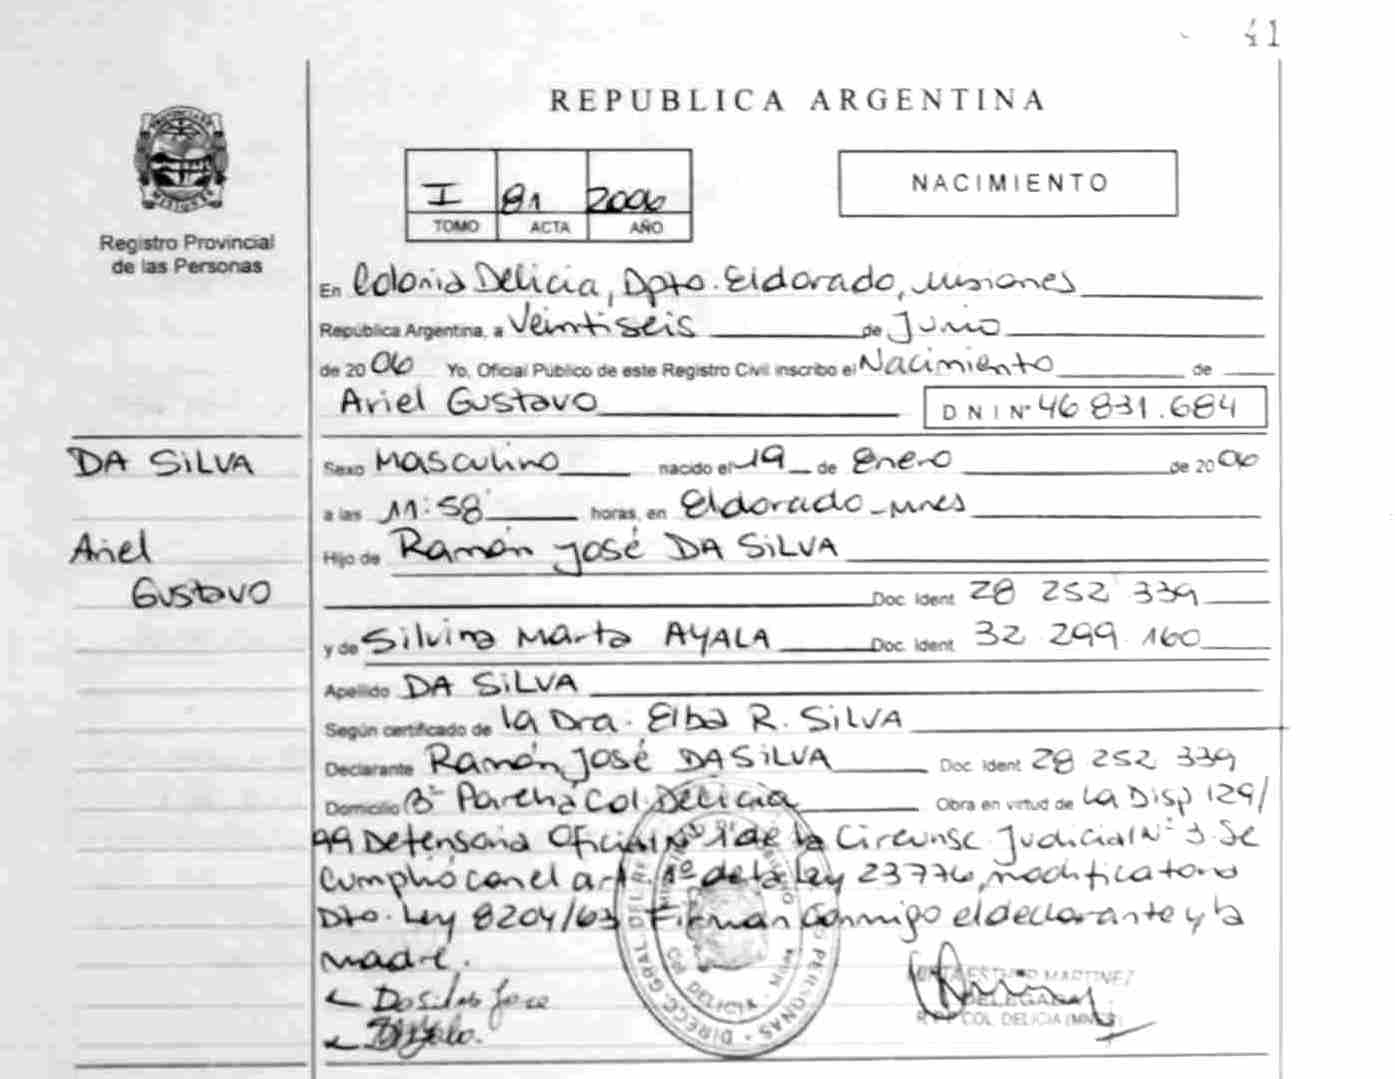 41
REPUBLICA ARGENTINA
PROVINCIA DE MISIONES
Registro Provincial
de las Personas
I 81 2006
TOMO ACTA AÑO
NACIMIENTO
En Colonia Delicia, Dpto. Eldorado, Misiones
República Argentina, a Veintiseis de Junio
de 2006 Yo, Oficial Público de este Registro Civil inscribo el Nacimiento de
Ariel Gustavo DNI Nº 46 831.684
DA SILVA
Ariel
Gustavo
Sexo Masculino nacido el 19 de Enero de 2006
a las 11:58 horas, en Eldorado - Mnes
Hijo de Ramón José DA SILVA
Doc. Ident 28 252 339
y de Silvina Marta AYALA Doc. Ident 32 299.160
Apellido DA SILVA
Según certificado de la Dra. Elba R. SILVA
Declarante Ramón José DA SILVA Doc. Ident 28 252 339
Domicilio Col. Delicia Obra en virtud de La Disp 129/
99 Defensoria Oficial Nº 1 de la Circunsc. Judicial Nº 3. Se
Cumplió con el art. 1º de la Ley 23776, modificatoria
Dto. Ley 8204/63 Firman Conmigo el declarante y la
madre.
Da Silva Jose
ESTHER MARTINEZ
DELEGADA
COL. DELICIA (MNES)